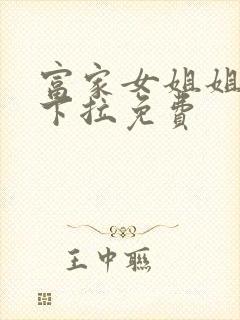 富家女姐姐
下拉免费
王中联